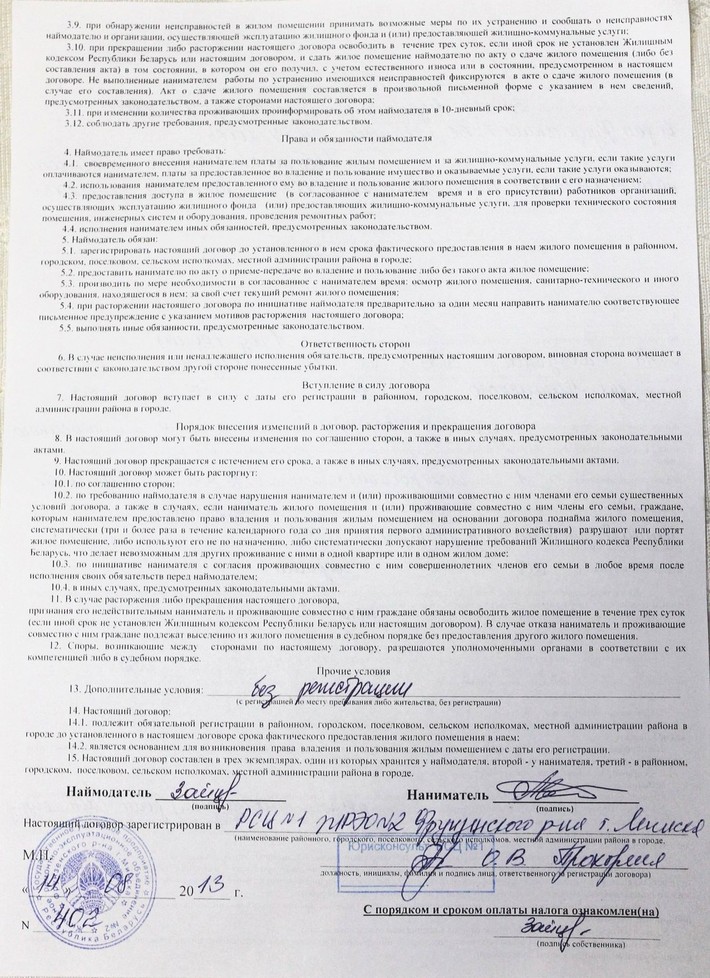 3.9. при обнаружении неисправностей в жилом помещении принимать возможные меры по их устранению и сообщать о неисправностях
наймодателю и организации, осуществляющей эксплуатацию жилищного фонда и (или) предоставляющей жилищно-коммунальные услуги;
3.10. при прекращении либо расторжении настоящего договора освободить в течение трех суток, если иной срок не установлен Жилищным
кодексом Республики Беларусь или настоящим договором, и сдать жилое помещение наймодателю по акту о сдаче жилого помещения (либо без
составления акта) в том состоянии, в котором он его получил, с учетом естественного износа или в состоянии, предусмотренном в настоящем
договоре. Не выполненные нанимателем работы по устранению имеющихся неисправностей фиксируются в акте о сдаче жилого помещения (в
случае его составления). Акт о сдаче жилого помещения составляется в произвольной письменной форме с указанием в нем сведений,
предусмотренных законодательством, а также сторонами настоящего договора;
3.11. при изменении количества проживающих проинформировать об этом наймодателя в 10-дневный срок;
3.12. соблюдать другие требования, предусмотренные законодательством.
Права и обязанности наймодателя
4. Наймодатель имеет право требовать:
4.1. своевременного внесения нанимателем платы за пользование жилым помещением и за жилищно-коммунальные услуги, если такие услуги
оплачиваются нанимателем, платы за предоставленное во владение и пользование имущество и оказываемые услуги, если такие услуги оказываются;
4.2. использования нанимателем предоставленного ему во владение и пользование жилого помещения в соответствии с его назначением;
4.3. предоставления доступа в жилое помещение (в согласованное с нанимателем время и в его присутствии) работников организаций,
осуществляющих эксплуатацию жилищного фонда (или) предоставляющих жилищно-коммунальные услуги, для проверки технического состояния
помещения, инженерных систем и оборудования, проведения ремонтных работ;
4.4. исполнения нанимателем иных обязанностей, предусмотренных законодательством.
5. Наймодатель обязан:
5.1. зарегистрировать настоящий договор до установленного в нем срока фактического предоставления в наем жилого помещения в районном,
городском, поселковом, сельском исполкомах, местной администрации района в городе;
5.2. предоставить нанимателю по акту о приеме-передаче во владение и пользование либо без такого акта жилое помещение;
5.3. производить по мере необходимости в согласованное с нанимателем время: осмотр жилого помещения, санитарно-технического и иного
оборудования, находящегося в нем; за свой счет текущий ремонт жилого помещения;
5.4. при расторжении настоящего договора по инициативе наймодателя предварительно за один месяц направить нанимателю соответствующее
письменное предупреждение с указанием мотивов расторжения настоящего договора;
5.5. выполнять иные обязанности, предусмотренные законодательством.
Ответственность сторон
6. В случае неисполнения или ненадлежащего исполнения обязательств, предусмотренных настоящим договором, виновная сторона возмещает в
соответствии с законодательством другой стороне понесенные убытки.
Вступление в силу договора
7. Настоящий договор вступает в силу с даты его регистрации в районном, городском, поселковом, сельском исполкомах, местной
администрации района в городе.
Порядок внесения изменений в договор, расторжения и прекращения договора
8. В настоящий договор могут быть внесены изменения по соглашению сторон, а также в иных случаях, предусмотренных законодательными
актами.
9. Настоящий договор прекращается с истечением его срока, а также в иных случаях, предусмотренных законодательными актами.
10. Настоящий договор может быть расторгнут:
10.1. по соглашению сторон;
10.2. по требованию наймодателя в случае нарушения нанимателем и (или) проживающими совместно с ним членами его семьи существенных
условий договора, а также в случаях, если наниматель жилого помещения и (или) проживающие совместно с ним члены его семьи, граждане,
которым нанимателем предоставлено право владения и пользования жилым помещением на основании договора поднайма жилого помещения,
систематически (три и более раза в течение календарного года со дня принятия первого административного воздействия) разрушают или портят
жилое помещение, либо используют его не по назначению, либо систематически допускают нарушение требований Жилищного кодекса Республики
Беларусь, что делает невозможным для других проживание с ними в одной квартире или в одном жилом доме;
10.3. по инициативе нанимателя с согласия проживающих совместно с ним совершеннолетних членов его семьи в любое время после
исполнения своих обязательств перед наймодателем;
10.4. в иных случаях, предусмотренных законодательными актами.
11. В случае расторжения либо прекращения настоящего договора,
признания его недействительным наниматель и проживающие совместно с ним граждане обязаны освободить жилое помещение в течение трех суток
(если иной срок не установлен Жилищным кодексом Республики Беларусь или настоящим договором). В случае отказа наниматель и проживающие
совместно с ним граждане подлежат выселению из жилого помещения в судебном порядке без предоставления другого жилого помещения.
12. Споры, возникающие между сторонами по настоящему договору, разрешаются уполномоченными органами в соответствии с их
компетенцией либо в судебном порядке.
Прочие условия
13. Дополнительные условия: без регистрации
(с регистрацией по месту пребывания либо жительства, без регистрации)
14. Настоящий договор:
14.1. подлежит обязательной регистрации в районном, городском, поселковом, сельском исполкомах, местной администрации района в
городе до установленного в настоящем договоре срока фактического предоставления жилого помещения в наем;
14.2. является основанием для возникновения права владения и пользования жилым помещением с даты его регистрации.
15. Настоящий договор составлен в трех экземплярах, один из которых хранится у наймодателя, второй - у нанимателя, третий - в районном,
городском, поселковом, сельском исполкомах, местной администрации района в городе.
Наймодатель Зайцев Наниматель
(подпись) (подпись)
Настоящий договор зарегистрирован в РСЦ №1 ЖРЭО №2 Фрунзенского р-на г. Минска
(наименование районного, городского, поселкового, сельского исполкомов, местной администрации района в городе,
Юрисконсульт РСЦ №1
М.П. О. В.
должность, инициалы, фамилия и подпись лица, ответственного за регистрацию договора)
« 14 » 08 2013 г.
С порядком и сроком оплаты налога ознакомлен(на)
N 402 Зайцев
(подпись собственника)
Республика Беларусь